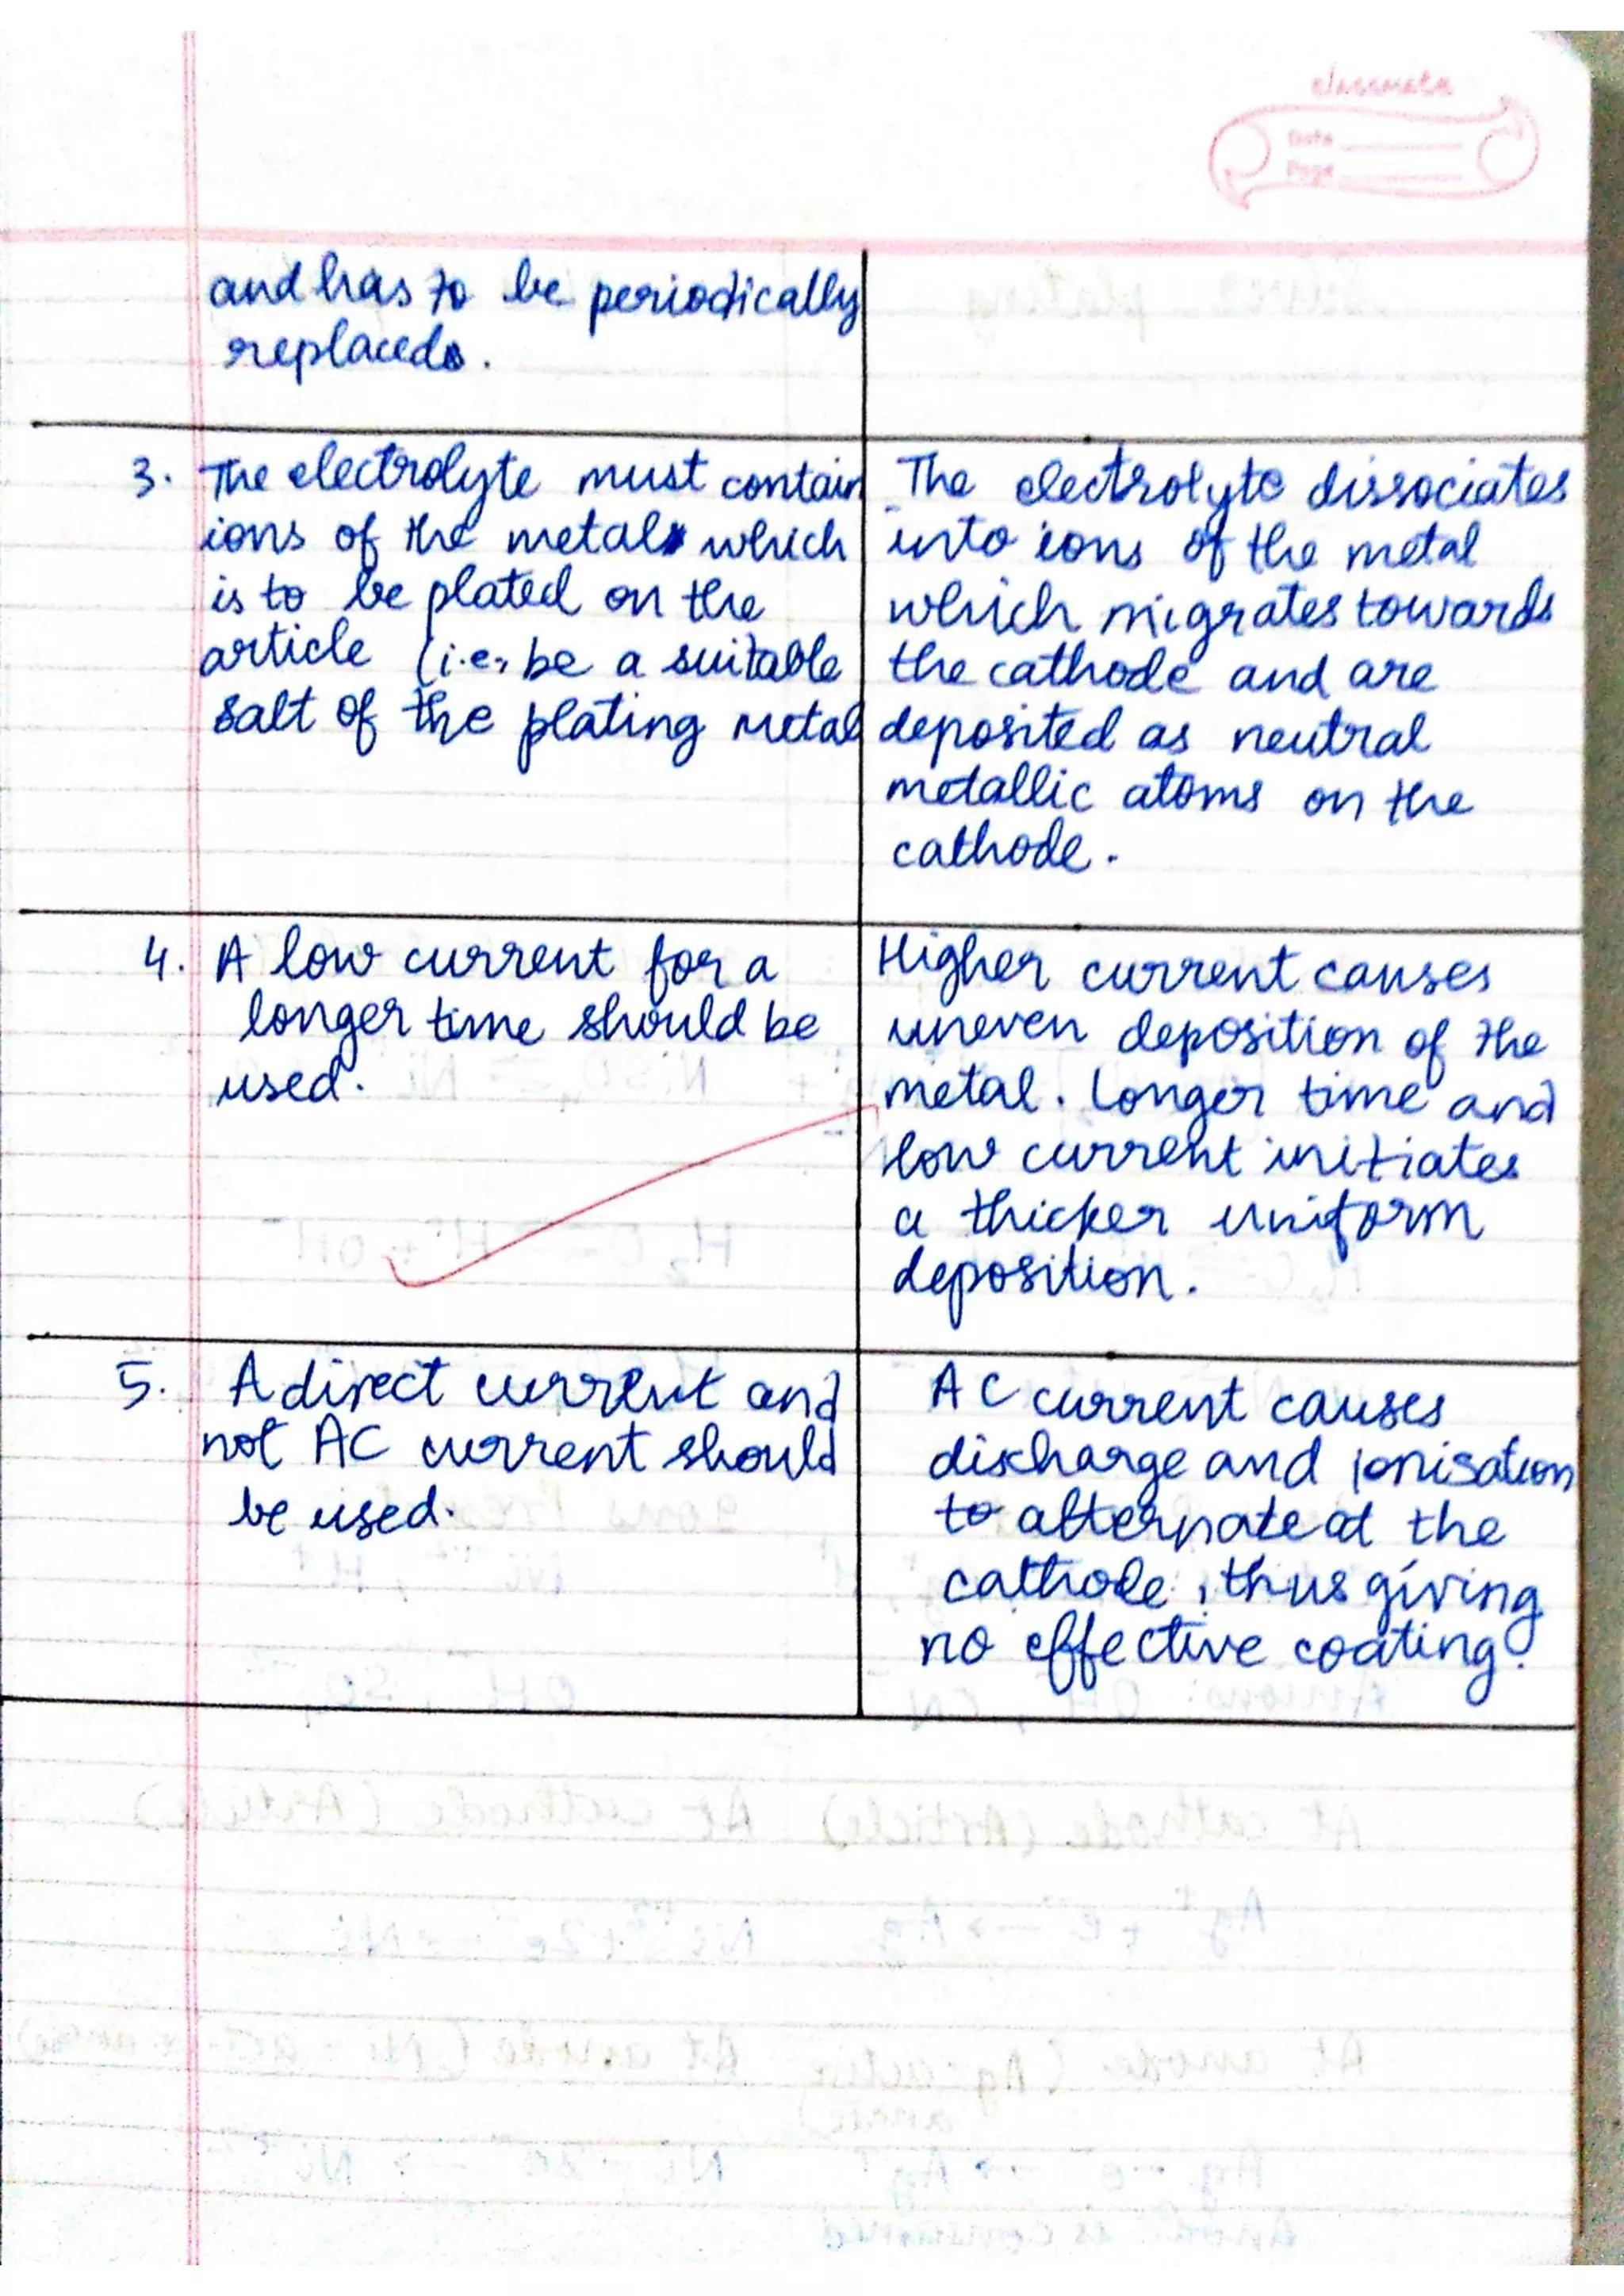 classmate
Date
Page
and has to be periodically
replaced.
3. The electrolyte must contain
ions of the metal which
is to be plated on the
article (i.e., be a suitable
salt of the plating metal
The electrolyte dissociates
into ions of the metal
which migrates towards
the cathode and are
deposited as neutral
metallic atoms on the
cathode.
4. A low current for a
longer time should be
used.
Higher current causes
uneven deposition of the
metal. Longer time and
low current initiates
a thicker uniform
deposition.
5. A direct current and
not AC current should
be used.
AC current causes
discharge and ionisation
to alternate at the
cathode, thus giving
no effective coating.